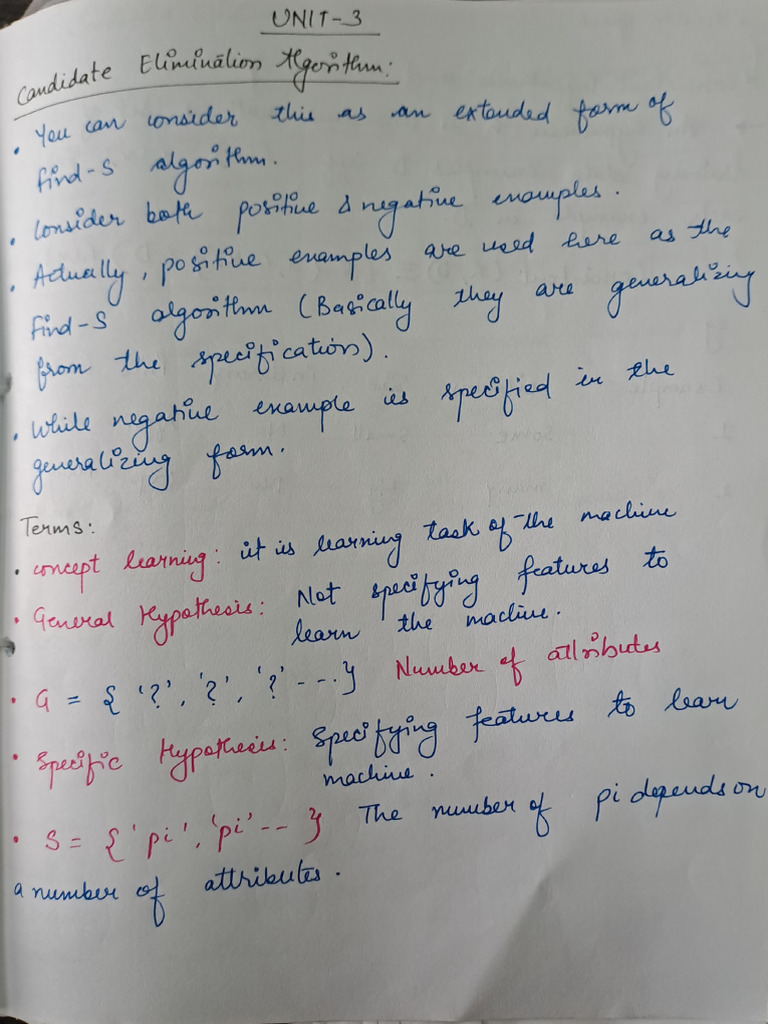 UNIT-3
Candidate Elimination Algorithm:
• You can consider this as an extended form of
find-S algorithm.
• Consider both positive & negative examples.
• Actually, positive examples are used here as the
find-S algorithm (Basically they are generalizing
from the specification).
• While negative example is specified in the
generalizing form.
Terms:
• concept learning: it is learning task of the machine
• General Hypothesis: Not specifying features to
learn the machine.
• G = { '?', '?', '?' ---} Number of attributes
• Specific Hypothesis: Specifying features to learn
machine.
• S = { 'pi', 'pi' -- } The number of pi depends on
a number of attributes.